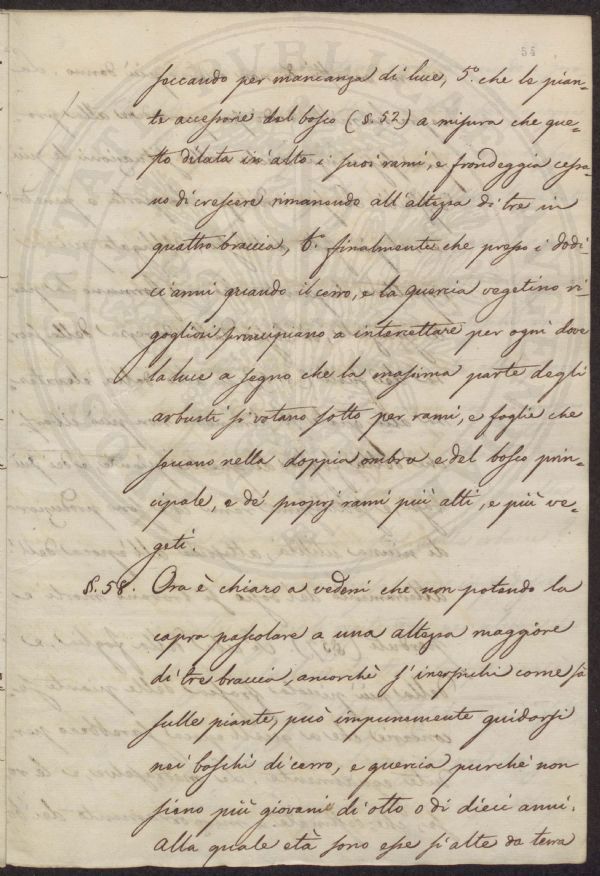 55
seccando per mancanza di luce, 5.° che le pian-
te accessorie del bosco (§. 52) a misura che que-
sto dilata in alto i suoi rami, e frondeggia cessa-
no di crescere rimanendo all'altezza di tre in
quattro braccia, 6.° finalmente che presso i dodi-
ci anni quando il cerro, e la quercia vegetino ri-
gogliosi principiano a intercettare per ogni dove
la luce a segno che la massima parte degli
arbusti si votano sotto per rami, e foglie che
seccano nella doppia ombra e del bosco prin-
cipale, e de' proprj rami più alti, e più ve-
geti.
§. 58. Ora è chiaro a vedersi che non potendo la
capra pascolare a una altezza maggiore
di tre braccia, ancorchè s'inerpichi come fa
sulle piante, può impunemente guidarsi
nei boschi di cerro, e quercia purchè non
sieno più giovani di otto o di dieci anni.
Alla quale età sono esse sì alte da terra